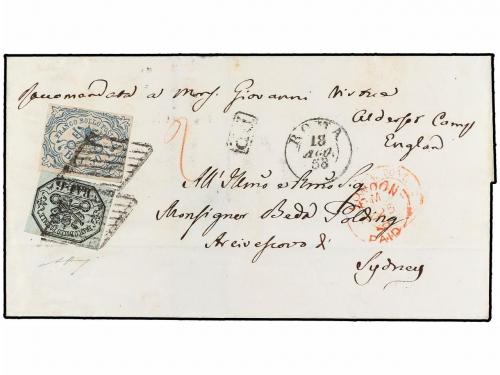 Raccomandata a Mons. Giovanni Virtue
Aldershot Camp
England
FRANCO BOLLO
2
P.D.
ROMA
13
AGO
58
BAJ. 6
LONDON
PAID
All' Illmo e Rmo Sig
Monsignor Beda Polding
Arcivescovo di
Sydney